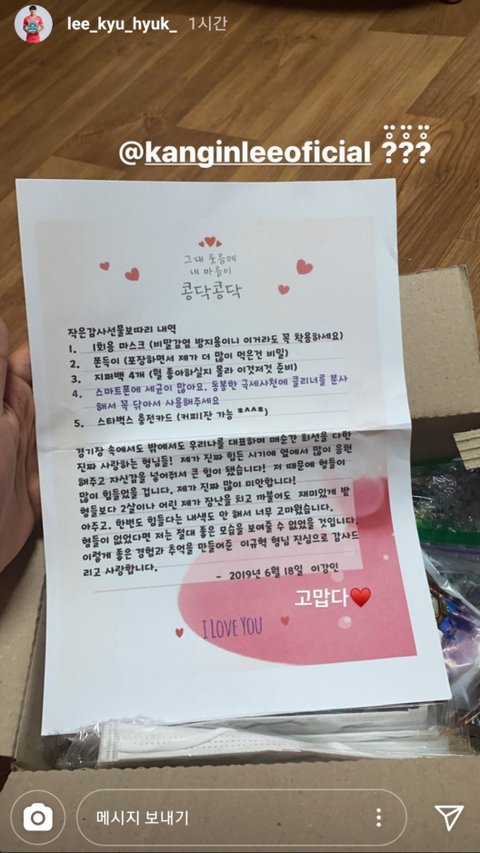 lee_kyu_hyuk_ 1시간
@kanginleeoficial ???
그대 웃음에
내 마음이
콩닥콩닥
작은감사선물보따리 내역
1. 1회용 마스크 (비말감염 방지용이니 이거라도 꼭 착용하세요)
2. 쫀득이 (포장하면서 제가 더 많이 먹은건 비밀)
3. 지퍼백 4개 (뭘 좋아하실지 몰라 이것저것 준비)
4. 스마트폰에 세균이 많아요. 동봉한 극세사천에 클리너를 분사
해서 꼭 닦아서 사용해주세요
5. 스타벅스 충전카드 (커피1잔 가능 *^^*)
경기장 속에서도 밖에서도 우리나를 대표하며 매순간 최선을 다한
진짜 사랑하는 형님들! 제가 진짜 힘든 시기에 옆에서 많이 응원
해주고 자신감을 넣어줘서 큰 힘이 됐습니다! 저 때문에 형들이
많이 힘들었을 겁니다. 제가 진짜 많이 미안합니다!
형들보다 2살이나 어린 제가 장난을 치고 까불어도 재미있게 받
아주고. 한번도 힘들다는 내색도 안 해서 너무 고마웠습니다.
형들이 없었다면 저는 절대 좋은 모습을 보여줄 수 없었을 것입니다.
이렇게 좋은 경험과 추억을 만들어준 이규혁 형님 진심으로 감사드
리고 사랑합니다.
- 2019년 6월 18일 이강인
고맙다❤️
I LOVE YOU
메시지 보내기